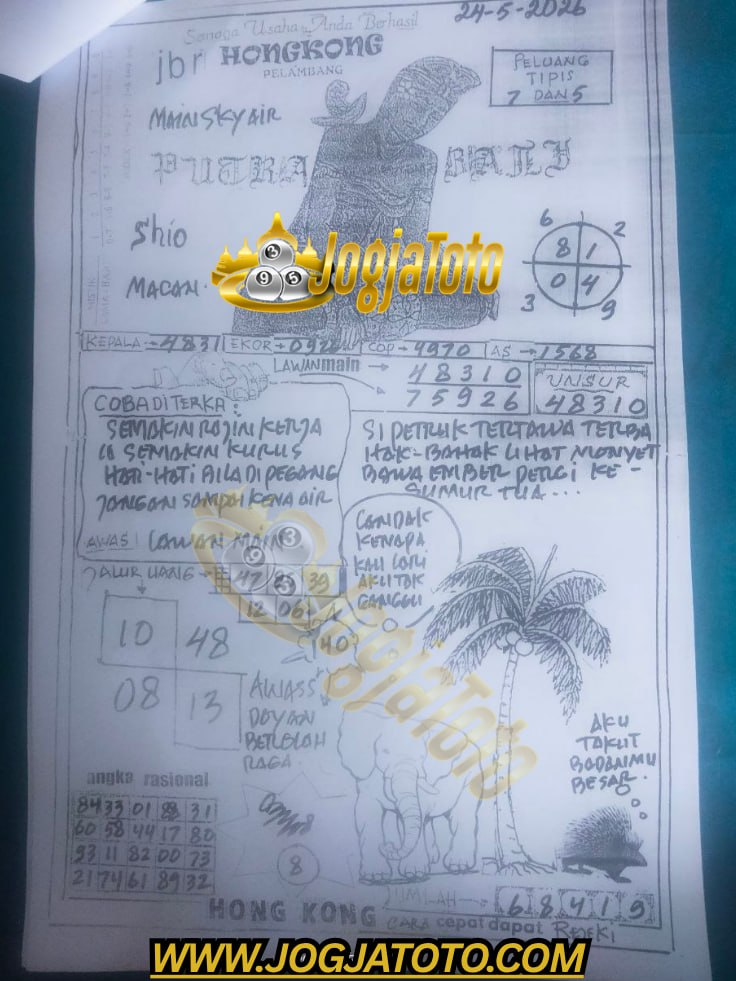 Semoga Usaha Anda Berhasil
24-5-2026
jbr HONGKONG
PELAMBANG
PELUANG
TIPIS
7 DAN 5
MAIN SKY AIR
PUTRA BALI
Shio
MACAN.
JogjaToto
3
9 5
6 2
8 1
0 4
3 9
KEPALA → 4831 EKOR → 092 COP → 4970 AS → 1568
LAWAN main → 48310
75926
UNSUR
48310
COBA DITERKA:
SEMAKIN RAJIN KERJA
SEMAKIN KURUS
HATI-HATI BILA DI PEGANG
JANGAN SAMPAI KENA AIR
AWAS! LAWAN MAIN
SI PETRUK TERTAWA TERBA
HAK-BAHAK LIHAT MONYET
BAWA EMBER PERGI KE-
SUMUR TUA...
CANDAK
KENAPA
KAU LARI
AKU TAK
GANGGU
JALUR UANG → 47 85 39
12 06
40
10 48
08 13
AWASS
DOYAN
BEROLAH
RAGA
JogjaToto
AKU
TAKUT
BADANMU
BESAR.
angka rasional
84 33 01 88 31
60 58 44 17 80
93 11 82 00 73
21 74 61 89 32
8
JUMLAH → 6 8 4 1 9
HONG KONG CARA cepat dapat REJEKI
WWW.JOGJATOTO.COM